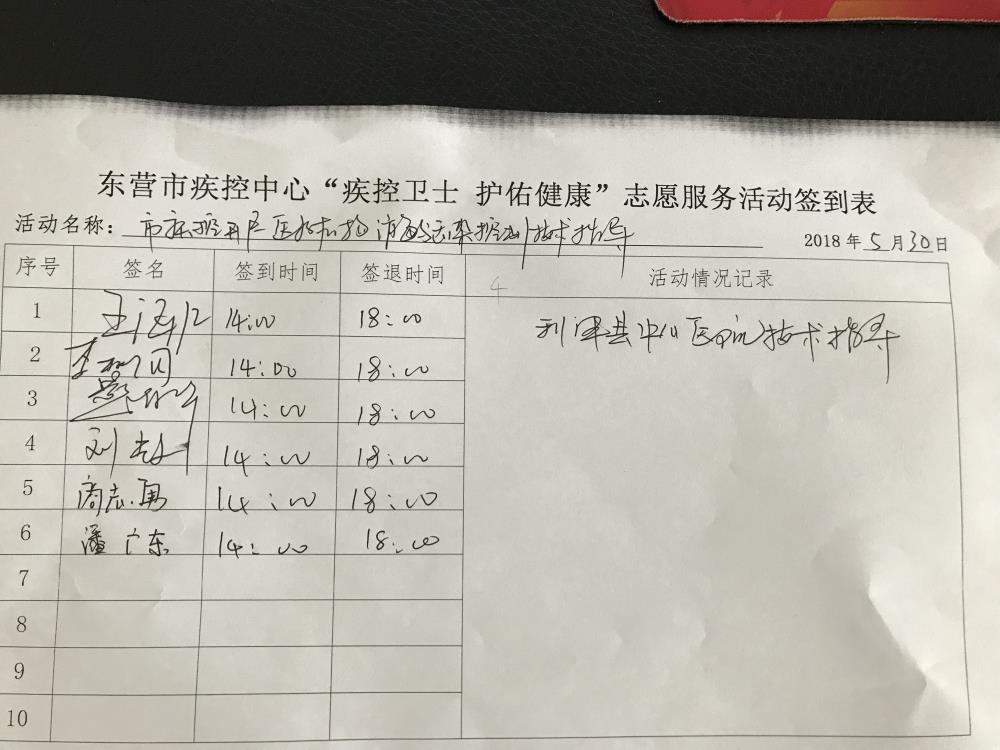 东营市疾控中心“疾控卫士 护佑健康”志愿服务活动签到表
活动名称： 市疾控开展医疗机构消毒与污染控制技术指导
2018年5月30日
序号 签名 签到时间 签退时间 活动情况记录
1 14:00 18:00 利津县中心医院技术指导
2 14:00 18:00
3 14:00 18:00
4 刘 14:00 18:00
5 商志勇 14:00 18:00
6 潘广东 14:00 18:00
7
8
9
10